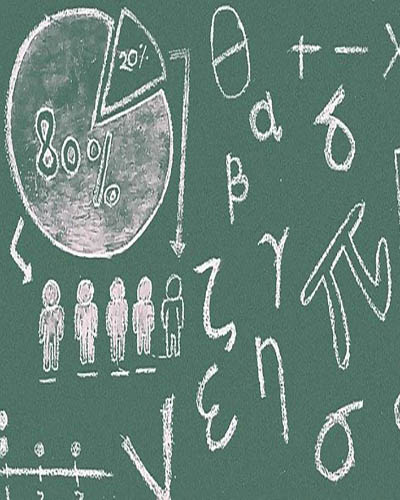 20%
80%
θ + −
α δ
β
γ π
ζ
η
ε
σ